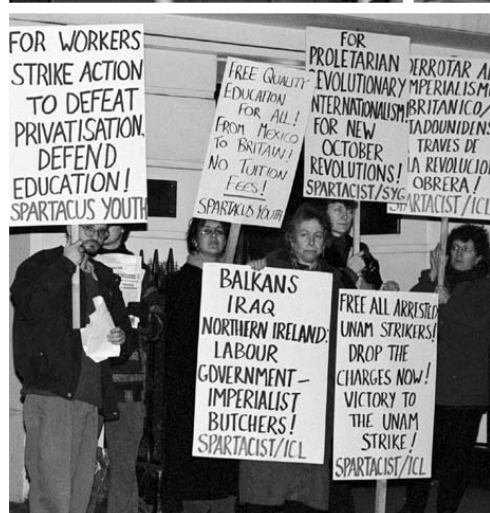 FOR WORKERS
STRIKE ACTION
TO DEFEAT
PRIVATISATION,
DEFEND
EDUCATION!
SPARTACUS YOUTH
FREE QUALITY
EDUCATION
FOR ALL!
FROM MEXICO
TO BRITAIN!
NO TUITION
FEES!
SPARTACUS YOUTH
FOR
PROLETARIAN
REVOLUTIONARY
INTERNATIONALISM!
FOR NEW
OCTOBER
REVOLUTIONS!
SPARTACIST/SYG
DERROTAR A
MPERIALISM
BRITANICO/
TADOUNIDENS
TRAVES DE
LA REVOLUCIO
OBRERA!
ARTACIST/ICL
BALKANS
IRAQ
NORTHERN IRELAND:
LABOUR
GOVERNMENT-
IMPERIALIST
BUTCHERS!
SPARTACIST/ICL
FREE ALL ARRESTED
UNAM STRIKERS!
DROP THE
CHARGES NOW!
VICTORY TO
THE UNAM
STRIKE!
SPARTACIST/ICL